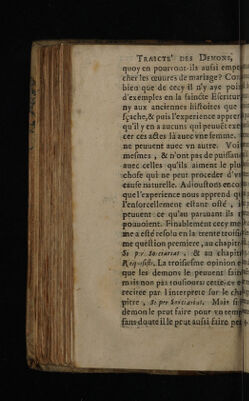 TRAICTE' DES DEMONS,
quoy en pourront-ils aussi empe
cher les œuures de mariage? Com
bien que de cecy il n'y aye poin
d'exemples en la saincte Escritur
ny aux anciennes histoires que
sçache, & puis l'experience appren
qu'il y en a aucuns qui peuuēt exer
cer ces actes là auec vne femme,
ne peuuent auec vn autre. Voi
mesmes, & n'ont pas de puissan
auec celles qu'ils aiment le plu
chose qui ne peut proceder d'vn
cause naturelle. Adioustons enco
que l'experience nous apprend qu
l'enforcellement estant osté, i
peuuent ce qu'au parauant ils n
pouuoient. Finablement cecy me
me a esté resolu en la trente troisie
me question premiere, au chapitr
Si per Sortiarias, & au chapitr
Requisisti. La troisiesme opinion e
que les demons le peuuent fain
mais non pas tousiours: ceste-cy e
recitée par l'interprete sur le cha
pitre, Si per Sortiarias. Mais si
demon le peut faire pour vn temp
sans doute il le peut aussi faire pe